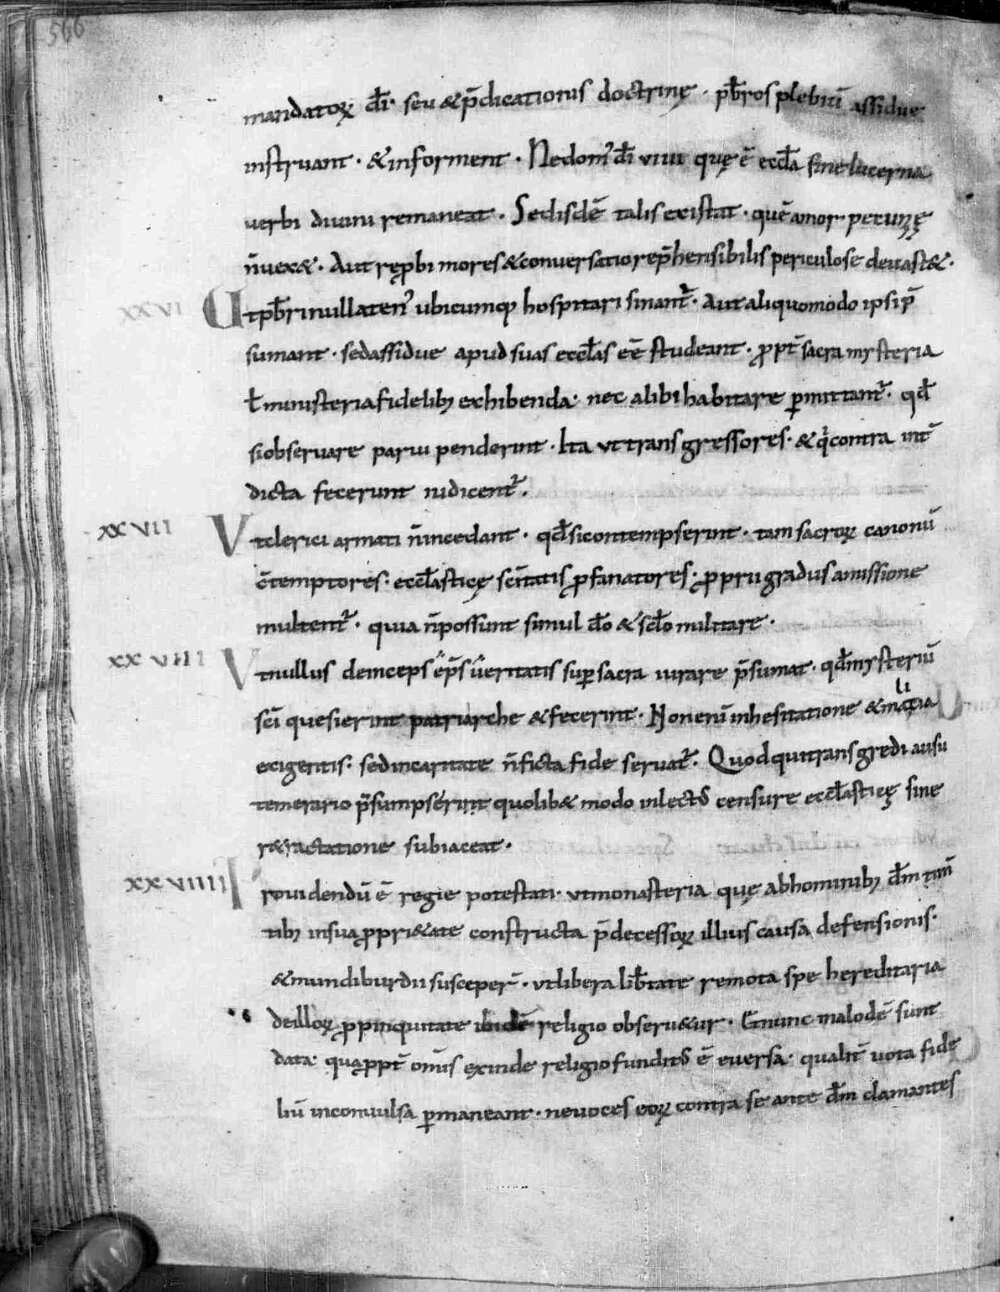 566
mandatoꝝ dī · seu & p̄dicationis doctrinę · pb̄ros plebiū assidue
instruant · & informent · Ne dom᷒ dī vivi quę ē eccl̄a sine lucerna
verbi divini remaneat · Sed isdē talis existat · quē amor pecunię
n̄ vex& · Aut rep̱bi mores & conversatio rep̄hensibilis periculose devast& ·
XXVI Ut pb̄ri nullaten᷒ ubicumq; hospitari sinant᷑ · Aut aliquomodo ipsi p̄
sumant · sed assidue apud suas eccl̄as eē studeant · ꝓpt̄ sacra mysteria
ł ministeria fidelib; exhibenda · nec alibi habitare ꝑmittant᷑ · qđ
si observare parvi penderint · Ita ut transgressores · & q̇ contra int̄
dicta fecerunt iudicent᷑ ·
XXVII Ut clerici armati n̄ incedant · qđ si contempserint · tam sacroꝝ canonū
c̄temptores · eccl̄asticę sc̄itatis ꝓfanatores · ꝓprii gradus amissione
multent᷑ · quia n̄ possunt simul dō & sclo militare ·
XXVIII Ut nullus deinceps ep̄s veritatis suꝑ sacra iurare p̄sumat · qđ mysteriū
sc̄i quesierint patriarche & fecerint · Non enī in hesitatione & malitia
exigentis · sed in caritate n̄ ficta fide servat᷑ · Quod qui transgredi ausu
temerario p̄sumpserint quolib& modo inlect᷒ censure eccl̄asticę sine
r&ractatione subiaceat ·
XXVIIII Providendū ē regie potestati · ut monasteria quę ab hominib; dm̄ tim̄
tib; in sua ꝓpri&ate constructa p̄decessoꝝ illius causa defensionis ·
& mundiburdii susceper̄ · ut libera lib̄tate remota spe hereditaria
de illoꝝ ꝓpinquitate ibidē religio observ&ur · & nunc malo dē sunt
data · qua ꝓpt̄ om̄is exinde religio fundit᷒ ē eversa · qualit̄ vota fide
liū inconvulsa ꝑmaneant · ne voces eoꝝ contra se ante dm̄ clamantes